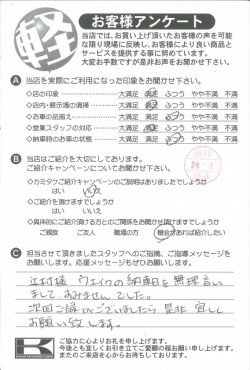 軽
お客様アンケート
当店では、お買い上げ頂いたお客様の声を可能
な限り現場に反映し、お客様により良い商品と
サービスを提供する事に努めています。
大変お手数ですが是非お声をお聞かせ下さい。
A 当店を実際にご利用になった印象をお聞かせ下さい。
◇店の印象 大満足 満足 ふつう やや不満 不満
◇店内・展示場の清掃 大満足 満足 ふつう やや不満 不満
◇お車の品揃え 大満足 満足 ふつう やや不満 不満
◇営業スタッフの対応 大満足 満足 ふつう やや不満 不満
◇納車時のお車の状態 大満足 満足 ふつう やや不満 不満
B 当店はご紹介を大切にしております。
ご紹介キャンペーンについてお聞かせ下さい。
◇カミタケご紹介キャンペーンのご説明はありましたでしょうか
はい いいえ
◇ご紹介を頂けますでしょうか
はい いいえ
◇具体的にご紹介頂ける方とのご関係をお聞かせ頂けますでしょうか
ご親族 ご友人 職場の方 機会があれば紹介したい
C 担当させて頂きましたスタッフへのご指摘、ご指導メッセージを
お願いします。応援メッセージもぜひお願いします。
様 ウェイクの納車日を無理言い
まして、すみませんでした。
次回ご縁がございましたら是非宜しく
お願い致します。
K
ご協力に心よりお礼を申し上げます。
今後とも宜しくお引き立てご愛顧の程お願い申し上げます。
またのご来店を心からお待ちしております。